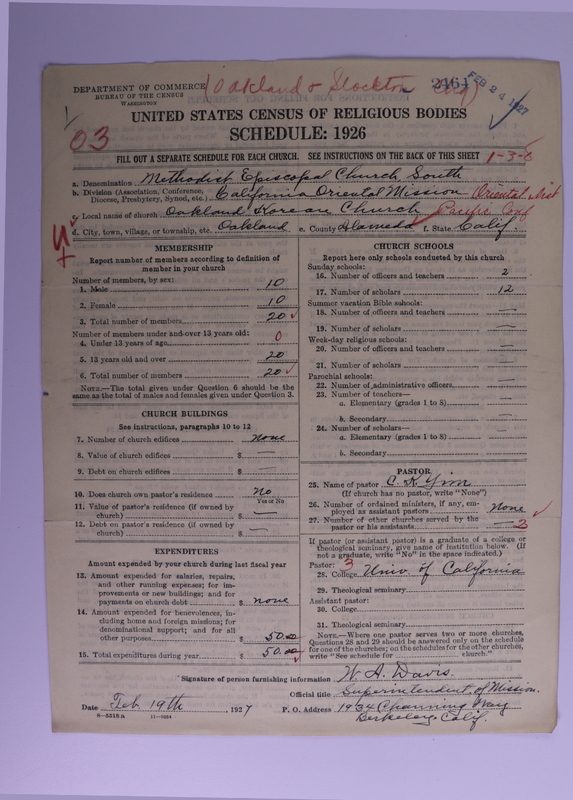 DEPARTMENT OF COMMERCE
BUREAU OF THE CENSUS
WASHINGTON
Oakland & Stockton
2464
FEB 24 1927
UNITED STATES CENSUS OF RELIGIOUS BODIES
SCHEDULE: 1926
03
FILL OUT A SEPARATE SCHEDULE FOR EACH CHURCH. SEE INSTRUCTIONS ON THE BACK OF THIS SHEET
a. Denomination Methodist Episcopal Church South
b. Division (Association, Conference, Diocese, Presbytery, Synod, etc.) California Oriental Mission Oriental Mist
c. Local name of church Oakland Korean Church Pacific Conf
d. City, town, village, or township, etc. Oakland e. County Alameda f. State Calif.
MEMBERSHIP
Report number of members according to definition of
member in your church
Number of members, by sex:
1. Male 10
2. Female 10
3. Total number of members 20
Number of members under and over 13 years old:
4. Under 13 years of age 0
5. 13 years old and over 20
6. Total number of members 20
NOTE.—The total given under Question 6 should be the
same as the total of males and females given under Question 3.
CHURCH BUILDINGS
See instructions, paragraphs 10 to 12
7. Number of church edifices none
8. Value of church edifices $ —
9. Debt on church edifices $ —
10. Does church own pastor's residence No
Yes or No
11. Value of pastor's residence (if owned by
church) $ —
12. Debt on pastor's residence (if owned by
church) $ —
EXPENDITURES
Amount expended by your church during last fiscal year
13. Amount expended for salaries, repairs,
and other running expenses; for im-
provements or new buildings; and for
payments on church debt $ none
14. Amount expended for benevolences, in-
cluding home and foreign missions; for
denominational support; and for all
other purposes $ 50.00
15. Total expenditures during year $ 50.00
CHURCH SCHOOLS
Report here only schools conducted by this church
Sunday schools:
16. Number of officers and teachers 2
17. Number of scholars 12
Summer vacation Bible schools:
18. Number of officers and teachers —
19. Number of scholars —
Week-day religious schools:
20. Number of officers and teachers —
21. Number of scholars —
Parochial schools:
22. Number of administrative officers —
23. Number of teachers—
a. Elementary (grades 1 to 8) —
b. Secondary —
24. Number of scholars—
a. Elementary (grades 1 to 8) —
b. Secondary —
PASTOR
25. Name of pastor C K Yim
(If church has no pastor, write "None")
26. Number of ordained ministers, if any, em-
ployed as assistant pastors none
27. Number of other churches served by the
pastor or his assistants — 3
If pastor (or assistant pastor) is a graduate of a college or
theological seminary, give name of institution below. (If
not a graduate, write "No" in the space indicated.)
Pastor: 3
28. College Univ. of California
29. Theological seminary
Assistant pastor:
30. College
31. Theological seminary
NOTE.—Where one pastor serves two or more churches,
Questions 28 and 29 should be answered only on the schedule
for one of the churches; on the schedules for the other churches,
write "See schedule for church."
Signature of person furnishing information W. A. Davis.
Official title Superintendent of Mission.
Date Feb. 19th, 1927 P. O. Address 1934 Channing Way
8—5318a 11—9034 Berkeley, Calif.